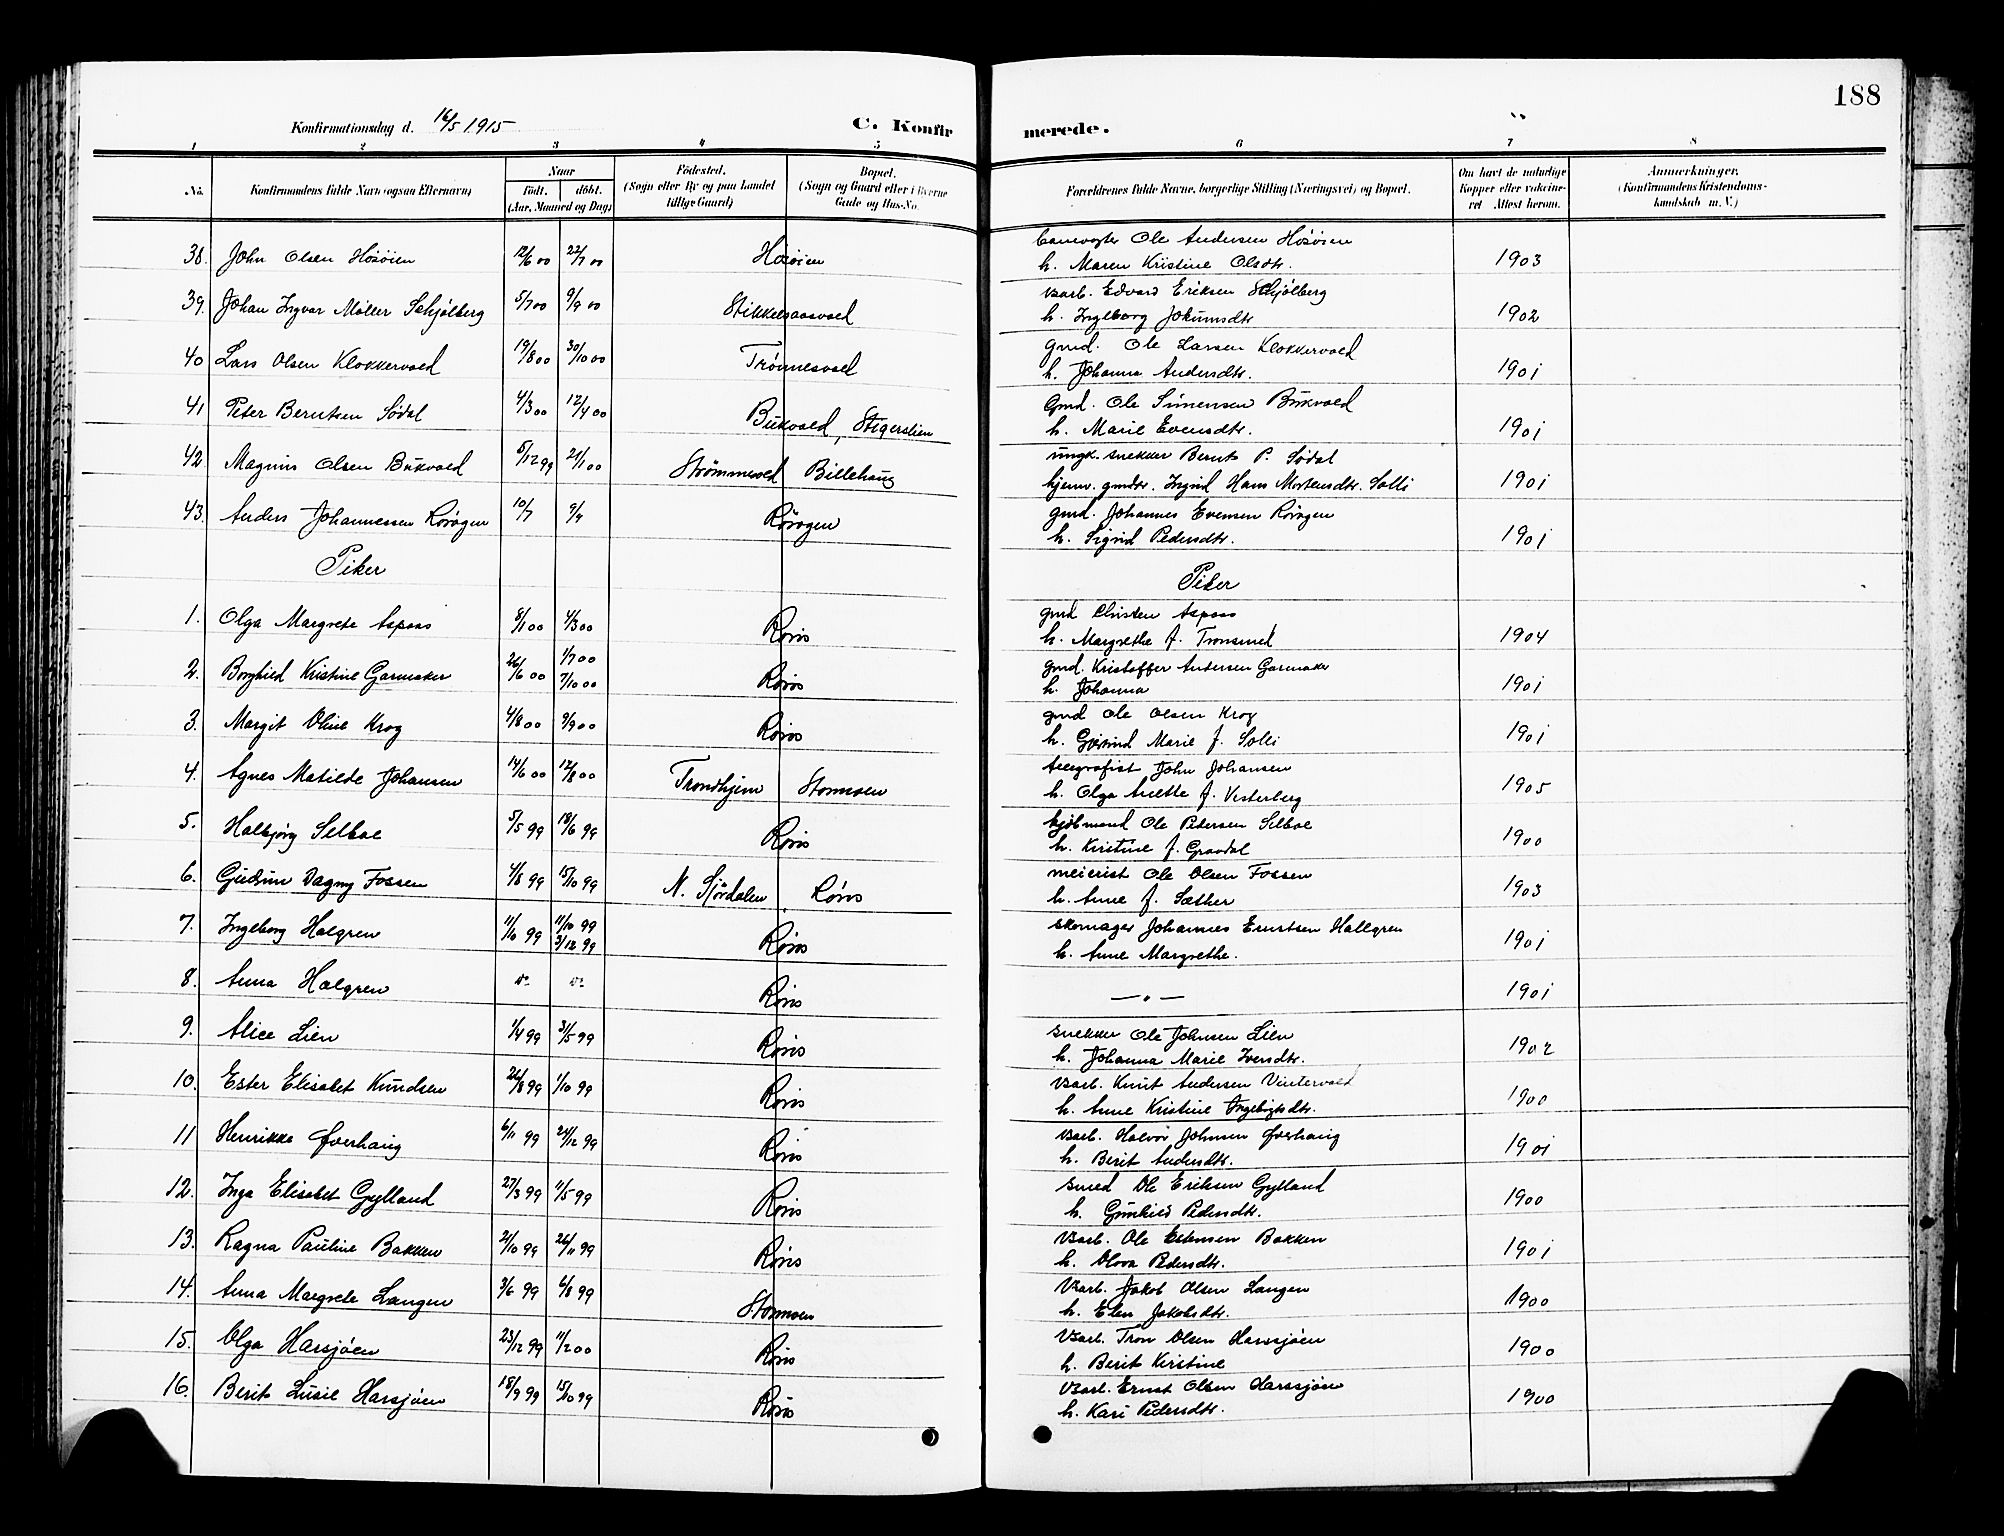 188
Konfirmationsdag d. 16/5 1915
C. Konfirmerede.
1 2 3 4 5 6 7 8
No. Konfirmandens fulde Navn (ogsaa Efternavn) Naar Födt. döbt. (Aar, Maaned og Dag) Födested. (Sogn eller By og paa Landet tillige Gaard) Bopæl. (Sogn og Gaard eller i Byerne Gade og Hus-No. Forældrenes fulde Navne, borgerlige Stilling (Næringsvei) og Bopæl. Om havt de naturlige Kopper eller vakcineret Attest herom. Anmærkninger. (Konfirmandens Kristendomskundskab m. V.)
38. John Olsen Hösöien 12/6 00 22/7 00 Hösöien banevogter Ole Andersen Hösöien
h. Maren Kristine Olsdtr. 1903
39. Johan Ingvar Möller Schjølberg 5/7 00 9/9 00 Stikkelsaasvold Varb. Edvard Eriksen Schjølberg
h. Ingeborg Jokumsdtr 1902
40 Lars Olsen Klokkervold 19/8 00 30/10 00 Trönnesvold gmd. Ole Larsen Klokkervold
h. Johanna Andersdtr. 1901
41 Peter Berntsen Södal 4/3 00 12/4 00 Bukvold, Stigerslien Gmd. Ole Simensen Bukvold
h. Marie Evensdtr. 1901
42 Magnus Olsen Bukvold 5/12 99 21/1 00 Strømmevold Billehaug ungk. snekker Bernt P. Södal
hjemv. gmdtr. Ingrid Hans Mortensdtr. Solli 1901
43. Anders Johannessen Rövogen 10/7 9/9 Rövogen gmd. Johannes Evensen Rövogen
h. Sigrid Pedersdtr. 1901
Piker Piker
1. Olga Margrete Aspaas 8/1 00 4/3 00 Røros gmd Christen Aspaas
h. Margrethe f. Tronsmed 1904
2. Borghild Kristine Garmaker 26/6 00 1/7 00 7/10 00 Røros gmd. Kristoffer Andersen Garmaker
h. Johanna 1901
3. Margit Oline Krog 4/8 00 9/9 00 Røros gmd Ole Olsen Krog
h. Marie f. Solli 1901
4. Agnes Matilde Johansen 14/6 00 12/8 00 Trondhjem Stormoen telegrafist John Johansen
h. Olga Anette f. Vesterberg 1905
5. Halbjørg Selboe 5/5 99 18/6 99 Røros kjöbmand Ole Pedersen Selboe
h. Kristine f. Graadal 1900
6. Gudrun Dagny Fossen 4/8 99 15/10 99 N. Stjørdalen, Røros meierist Ole Olsen Fossen
h. Anne f. Sæther 1903
7. Ingeborg Halgren 11/10 99 11/10 99 3/12 99 Røros skomager Johannes Erntsen Hallgren
h. Anne Margrethe. 1901
8. Anna Halgren do do Røros — " — 1901
9. Alice Lien 1/4 99 31/5 99 Røros snekker Ole Johnsen Lien
h. Johanna Marie Iversdtr. 1902
10. Ester Elisabet Knudsen 26/8 99 1/10 99 Røros Varb. Knut Andersen Vintervold
h. Anne Kristine Ingebrigtsdtr. 1900
11 Henrikke Øverhaug 6/11 99 24/12 99 Røros Varb. Halvor Johnsen Øverhaug
h. Berit Andersdtr. 1901
12. Inga Elisabet Gylland 27/3 99 11/5 99 Røros smed Ole Eriksen Gylland
h. Gunhild Pedersdtr. 1900
13. Ragna Pauline Bakken 2/10 99 26/11 99 Røros Varb. Ole Estensen Bakken
h. Olova Pedersdtr. 1901
14. Anna Margrete Langen 3/6 99 6/8 99 Stormoen Varb. Jakob Olsen Langen
h. Elen Jakobsdtr. 1900
15. Olga Harsjöen 23/12 99 11/2 00 Røros Varb. Tron Olsen Harssjöen
h. Berit Kirstine 1900
16. Berit Lusie Harsjöen 18/9 99 15/10 99 Røros Varb. Ernst Olsen Harssjöen
h. Kari Pedersdtr. 1900